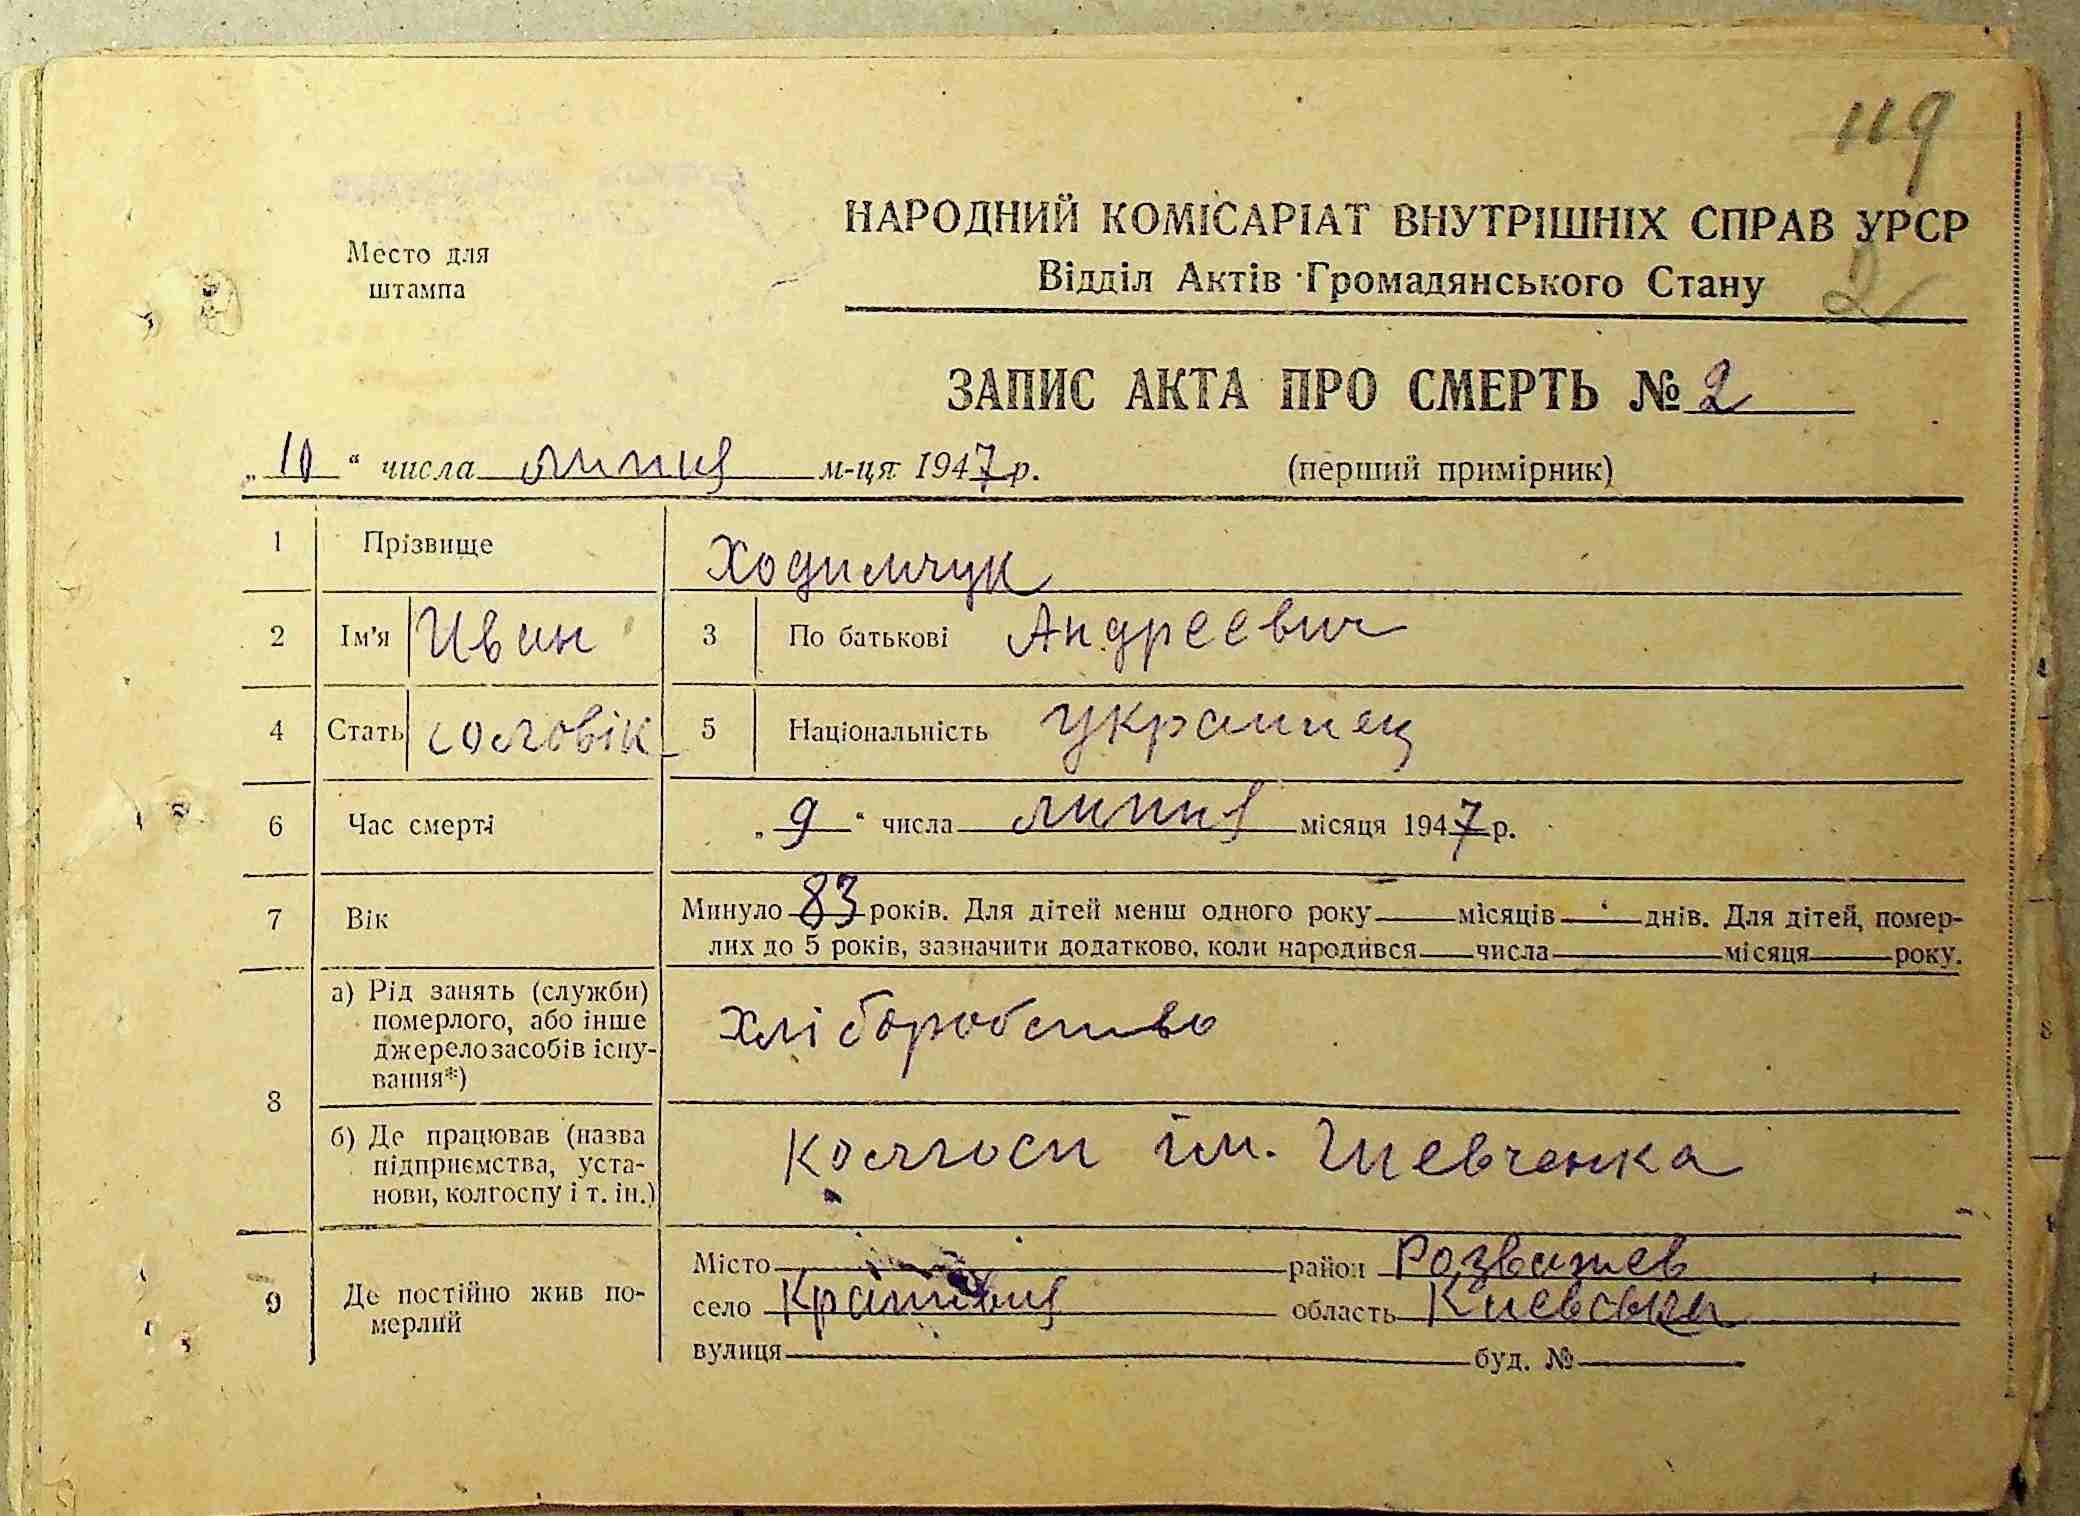 119
НАРОДНИЙ КОМІСАРІАТ ВНУТРІШНІХ СПРАВ УРСР
Место для
штампа
Відділ Актів Громадянського Стану
2
ЗАПИС АКТА ПРО СМЕРТЬ № 2
„10“ числа липня м-ця 1947 р. (перший примірник)
1 Прізвище Ходимчук
2 Ім'я Иван 3 По батькові Андреевич
4 Стать чоловік 5 Національність украинец
6 Час смерті „9“ числа липня місяця 1947 р.
7 Вік Минуло 83 років. Для дітей менш одного року місяців днів. Для дітей, помер-
лих до 5 років, зазначити додатково, коли народився числа місяця року.
8 а) Рід занять (служби)
померлого, або інше
джерело засобів існу-
вання*) хліборобство
б) Де працював (назва
підприємства, уста-
нови, колгоспу і т. ін.) Колгосп ім. Шевченка
9 Де постійно жив по-
мерлий
Місто район Розважев
село область Киевська
вулиця буд. №